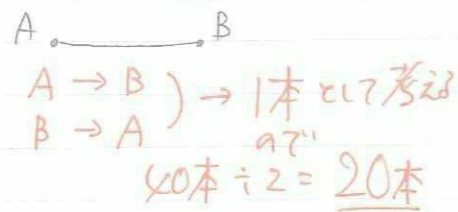 A B
A → B
B → A
) → 1本 として考える
ので
40本 ÷ 2 = 20本